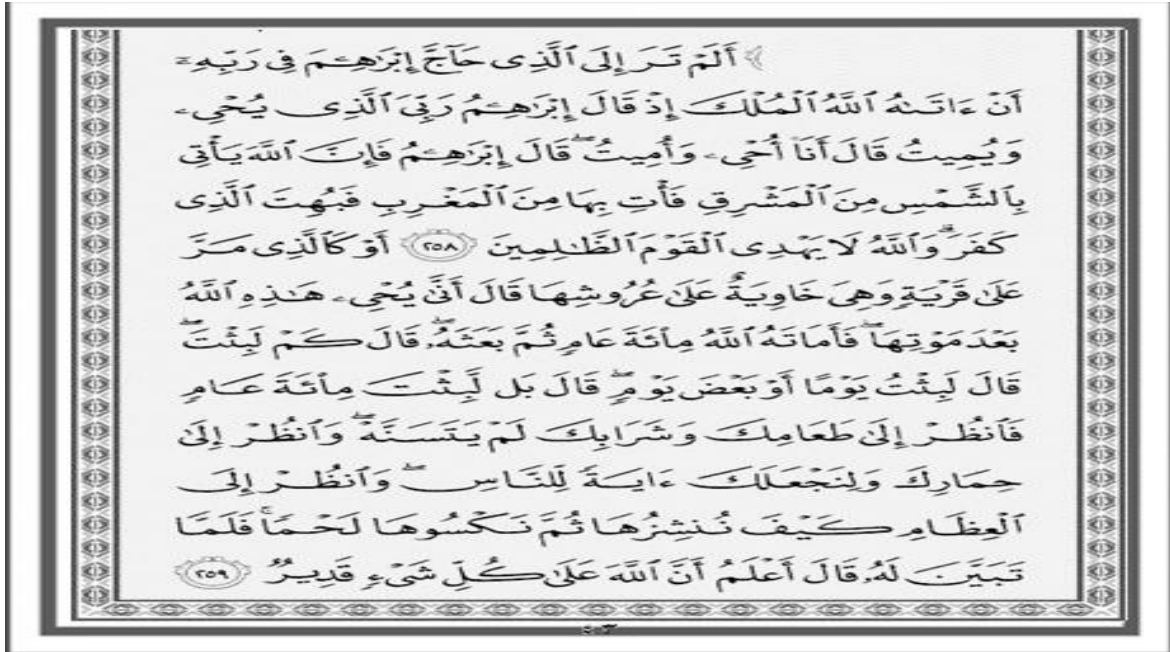 أَلَمْ تَرَ إِلَى ٱلَّذِى حَآجَّ إِبْرَٰهِـۧمَ فِى رَبِّهِۦٓ
أَنْ ءَاتَىٰهُ ٱللَّهُ ٱلْمُلْكَ إِذْ قَالَ إِبْرَٰهِـۧمُ رَبِّىَ ٱلَّذِى يُحْىِۦ
وَيُمِيتُ قَالَ أَنَا۠ أُحْىِۦ وَأُمِيتُ ۖ قَالَ إِبْرَٰهِـۧمُ فَإِنَّ ٱللَّهَ يَأْتِى
بِٱلشَّمْسِ مِنَ ٱلْمَشْرِقِ فَأْتِ بِهَا مِنَ ٱلْمَغْرِبِ فَبُهِتَ ٱلَّذِى
كَفَرَ ۗ وَٱللَّهُ لَا يَهْدِى ٱلْقَوْمَ ٱلظَّٰلِمِينَ ٢٥٨ أَوْ كَٱلَّذِى مَرَّ
عَلَىٰ قَرْيَةٍ وَهِىَ خَاوِيَةٌ عَلَىٰ عُرُوشِهَا قَالَ أَنَّىٰ يُحْىِۦ هَٰذِهِ ٱللَّهُ
بَعْدَ مَوْتِهَا ۖ فَأَمَاتَهُ ٱللَّهُ مِا۟ئَةَ عَامٍ ثُمَّ بَعَثَهُۥ ۖ قَالَ كَمْ لَبِثْتَ ۖ
قَالَ لَبِثْتُ يَوْمًا أَوْ بَعْضَ يَوْمٍ ۖ قَالَ بَل لَّبِثْتَ مِا۟ئَةَ عَامٍ
فَٱنظُرْ إِلَىٰ طَعَامِكَ وَشَرَابِكَ لَمْ يَتَسَنَّهْ ۖ وَٱنظُرْ إِلَىٰ
حِمَارِكَ وَلِنَجْعَلَكَ ءَايَةً لِّلنَّاسِ ۖ وَٱنظُرْ إِلَى
ٱلْعِظَامِ كَيْفَ نُنشِزُهَا ثُمَّ نَكْسُوهَا لَحْمًا ۚ فَلَمَّا
تَبَيَّنَ لَهُۥ قَالَ أَعْلَمُ أَنَّ ٱللَّهَ عَلَىٰ كُلِّ شَىْءٍ قَدِيرٌ ٢٥٩
٤٣